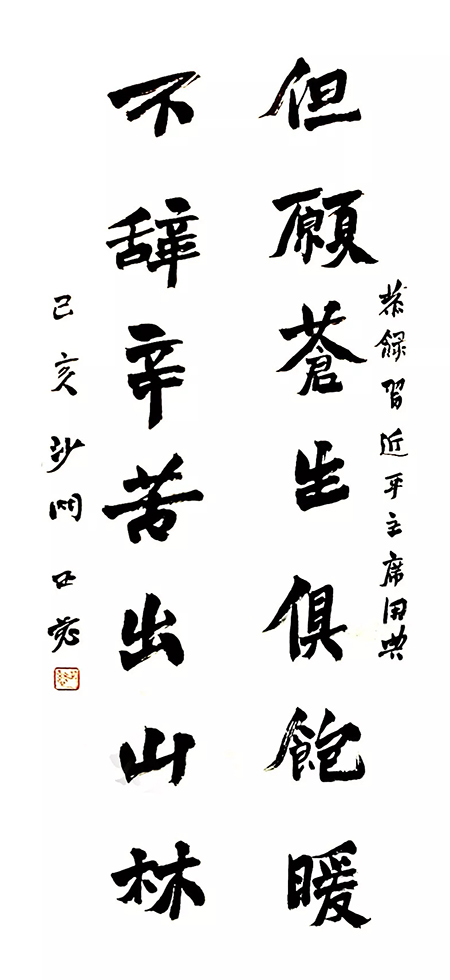 恭録習近平主席用典
但願蒼生俱飽暖
不辞辛苦出山林
己亥沙門